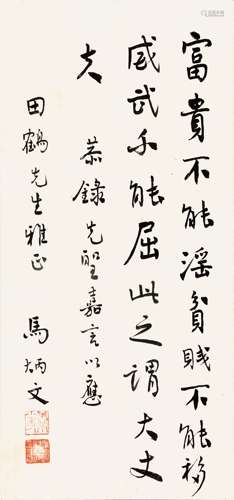 富貴不能淫貧賤不能移
威武不能屈此之謂大丈
夫 恭錄先聖嘉言以應
田鶴先生雅正
馬炳文